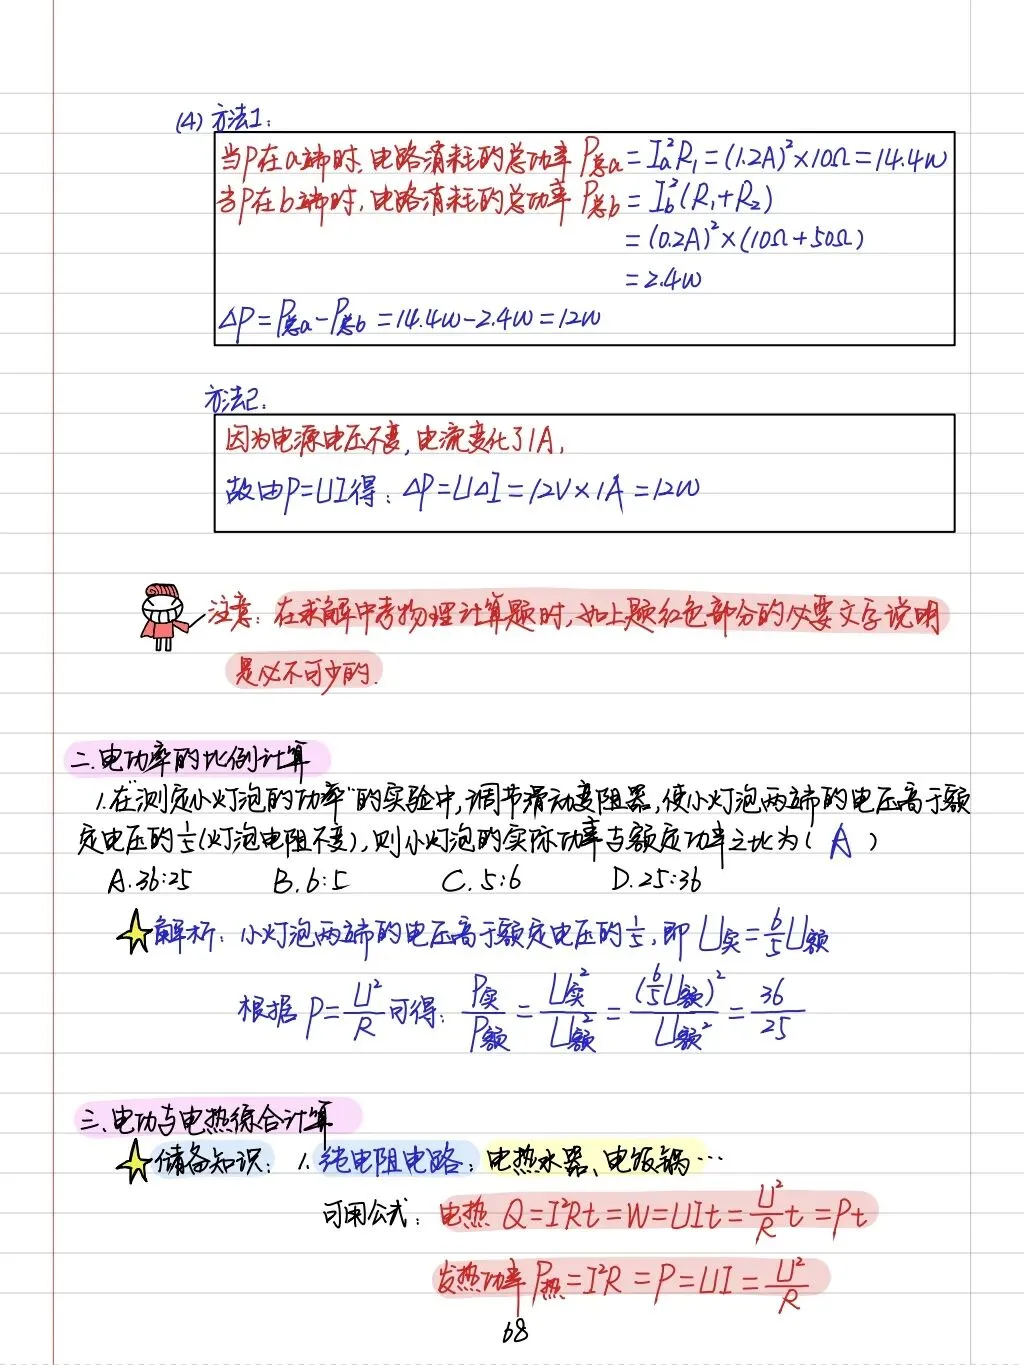 (4) 方法1:
当P在a端时,电路消耗的总功率 P总a = Ia²R₁ = (1.2A)²×10Ω = 14.4W
当P在b端时,电路消耗的总功率 P总b = Ib²(R₁+R₂)
= (0.2A)²×(10Ω+50Ω)
= 2.4W
ΔP = P总a - P总b = 14.4W - 2.4W = 12W
方法2:
因为电源电压不变,电流变化了1A,
故由P=UI得: ΔP = UΔI = 12V×1A = 12W
注意: 在求解中考物理计算题时,如上题红色部分的必要文字说明
是必不可少的.
二.电功率的比例计算
1.在"测定小灯泡的功率"的实验中,调节滑动变阻器,使小灯泡两端的电压高于额
定电压的1/5(灯泡电阻不变),则小灯泡的实际功率与额定功率之比为( A )
A.36:25 B.6:5 C.5:6 D.25:36
解析: 小灯泡两端的电压高于额定电压的1/5,即 U实 = 6/5 U额
根据 P = U²/R 可得: P实/P额 = U实²/U额² = (6/5 U额)²/U额² = 36/25
三、电功与电热综合计算
储备知识: 1.纯电阻电路: 电热水器、电饭锅…
可用公式: 电热 Q = I²Rt = W = UIt = U²/R t = Pt
发热功率 P热 = I²R = P = UI = U²/R
68